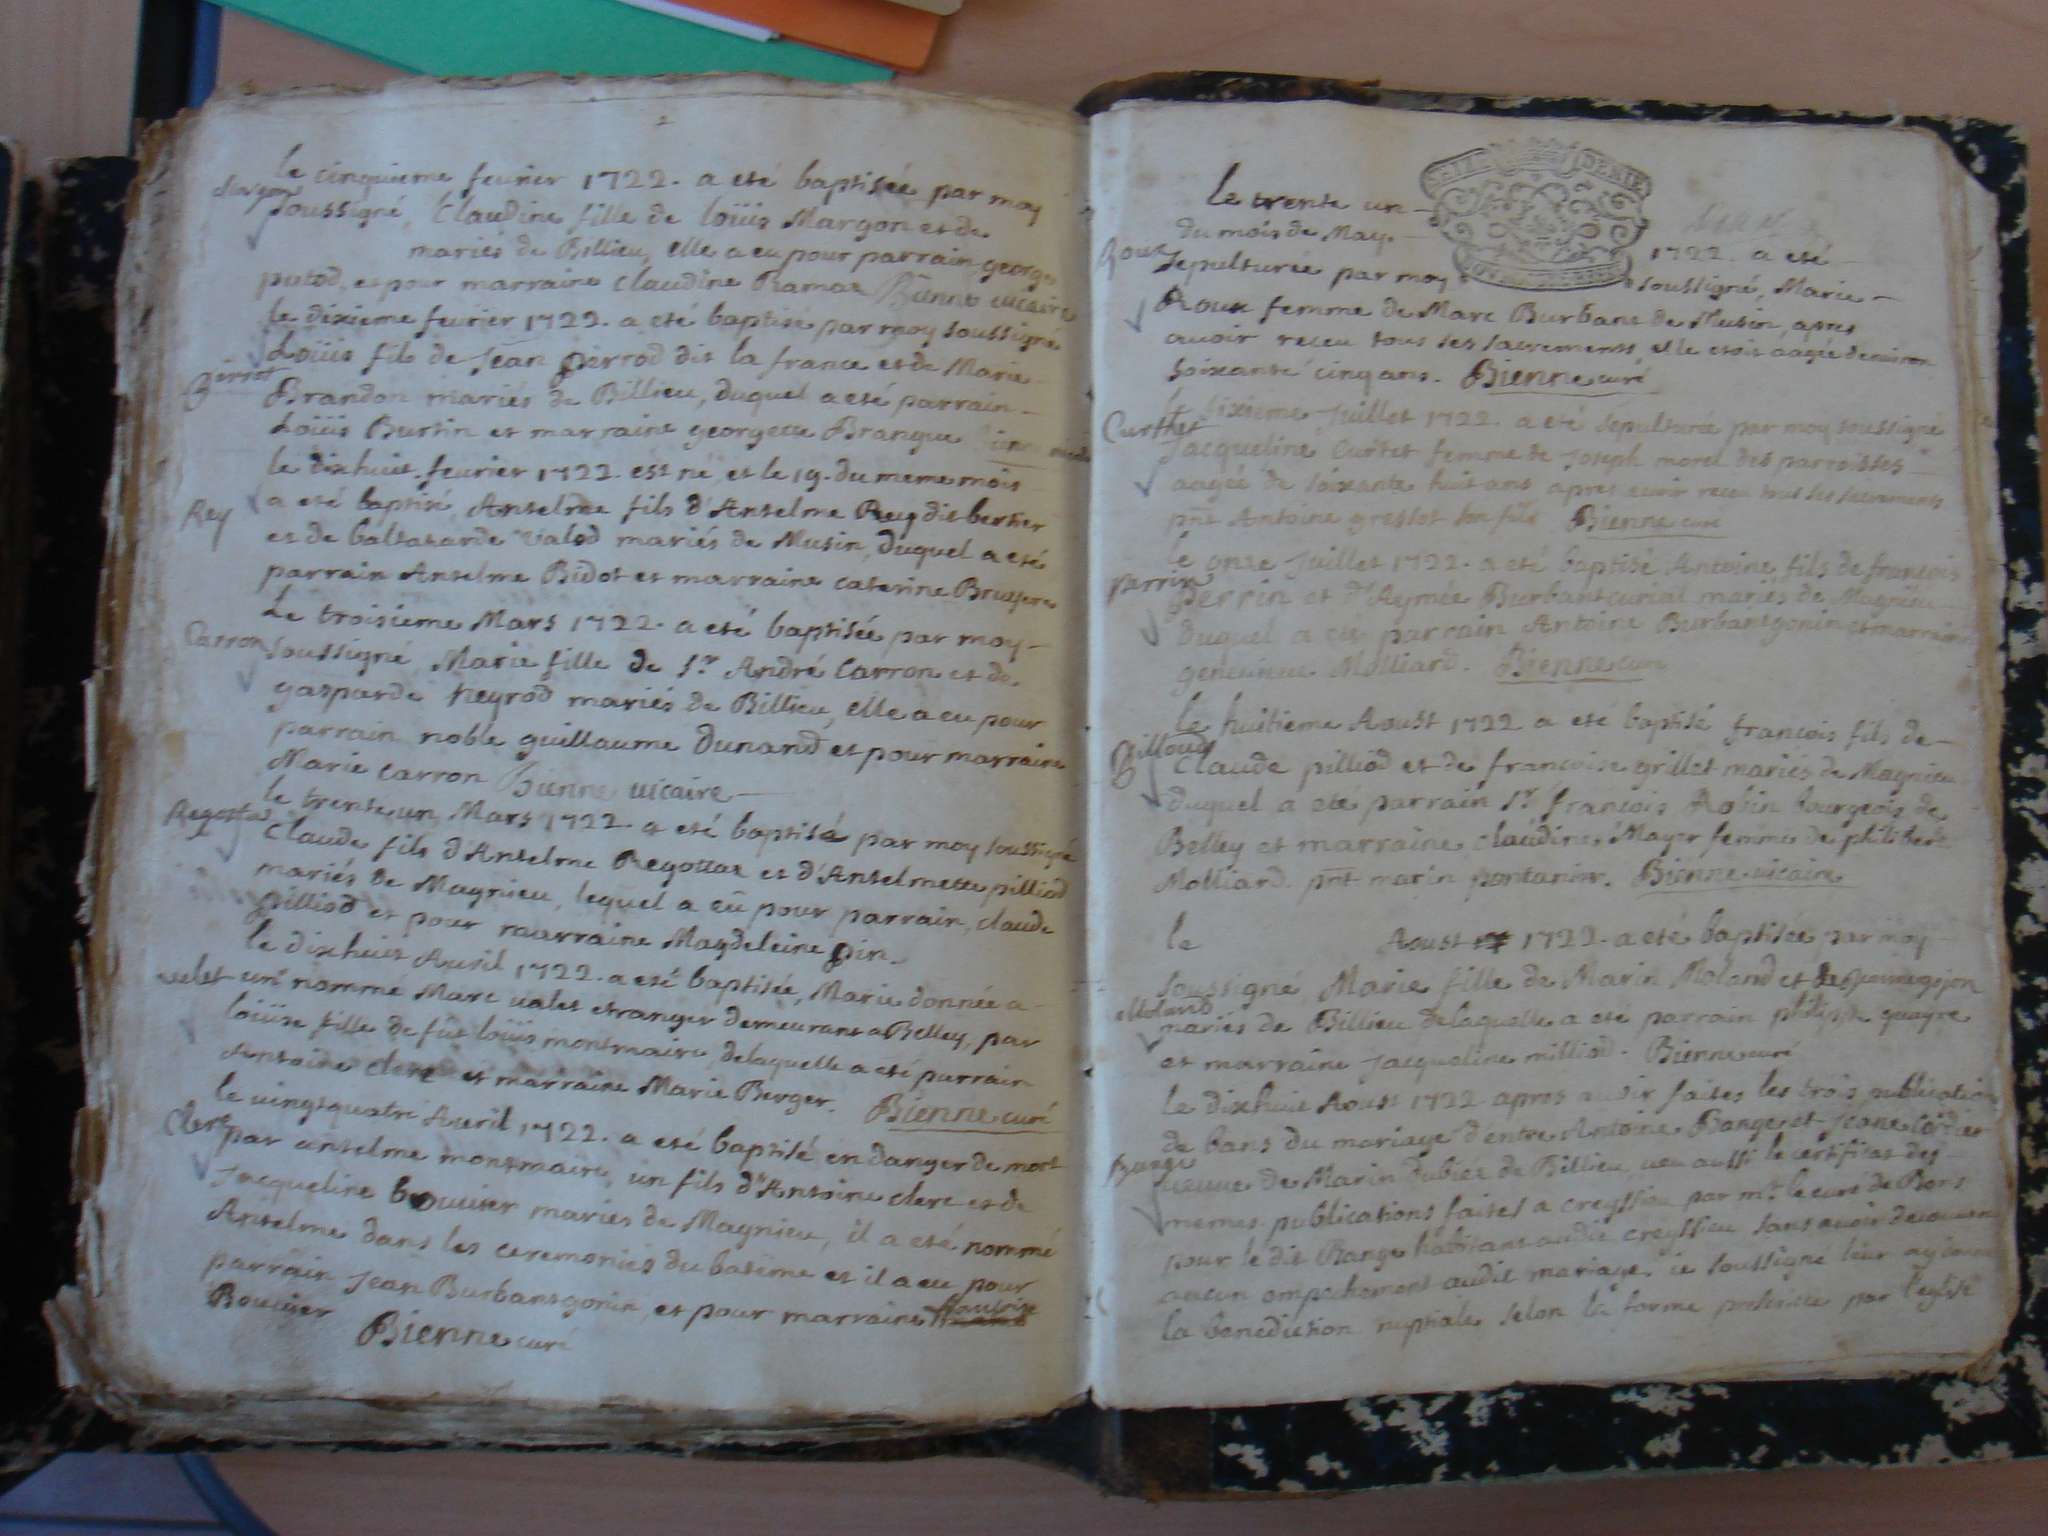 2
le cinquieme feurier 1722. a eté baptisée par moy
Margon
soussigné, Claudine fille de loüis Margon et de
mariés de Billieu, elle a eu pour parrain george
putod, et pour marraine claudine Ramaz Bienne uicaire
le dixieme feurier 1722. a eté baptisé par moy soussigné
Loüis fils de Jean perrod dit la france et de Marie
Perrot
Brandon mariés de Billieu, duquel a eté parrain
Loüis Burtin et marraine georgette Brangue
le dixhuit feurier 1722. est né et le 19. du meme mois
Rey
a eté baptisé, Anselme fils d'Anselme Rey dit bertier
et de baltazarde valod mariés de Musin, duquel a eté
parrain Anselme Bidot et marraine caterine
Le troisieme Mars 1722. a eté baptisée par moy
Carron
soussigné, Marie fille de Sr André Carron et de
gasparde peyrod mariés de Billieu, elle a eu pour
parrain noble guillaume Dunand et pour marraine
Marie carron Bienne uicaire
le trente un Mars 1722. a eté baptisé par moy soussigné
Regottaz
Claude fils d'Anselme Regottaz et d'Anselmette pilliod
mariés de Magnieu, lequel a eû pour parrain, claude
pilliod et pour marraine Magdeleine pin.
le dixhuit Auril 1722. a eté baptisée, Marie donnée a
valet
un nommé Marc valet etranger demeurant a Belley, par
loüise fille de fut loüis montmaire, delaquelle a eté parrain
Antoine clerc et marraine Marie Berger. Bienne curé
le uingtquatre Auril 1722. a eté baptisé en danger de mort
Clerc
par anselme montmaire, un fils d'Antoine clerc et de
Jacqueline bouuier mariés de Magnieu, il a eté nommé
Anselme dans les ceremonies du batême et il a eu pour
parrain Jean Burbantgonin, et pour marraine
Bouuier Bienne curé
le trente un
du mois de May. 1722. a eté
Roux
sepulturée par moy soussigné, Marie
Roux femme de Marc Burbant de Musin, apres
auoir receu tous ses sacrements, elle etoit aagée denuiron
soixante cinq ans. Bienne curé
le sixieme Juillet 1722. a eté sepulturée par moy soussigné
Curthet
Jacqueline Curtet femme de Joseph morel des parroisses
aagée de soixante huit ans apres auoir receu tous ses sacrements
pnt Antoine greslot son fils Bienne curé
le onze Juillet 1722. a eté baptisé Antoine fils de françois
Perrin
perrin et d'Aymée Burbantcurial mariés de Magnieu
duquel a eté parrain Antoine Burbantgonin et marraine
geneuieue Molliard. Bienne curé
le huitieme Aoust 1722 a eté baptisé françois fils de
Billoud
Claude pilliod et de francoise grillet mariés de Magnieu
duquel a eté parrain Sr françois Robin bourgeois de
Belley et marraine claudine Mayer femme de philibert
Molliard. pnt marin pontanier. Bienne uicaire
le Aoust 1722. a eté baptisée par moy
soussigné Marie fille de Marin Moland et
Moland
mariés de Billieu delaquelle a eté parrain philippe quayre
et marraine Jacqueline milliod. Bienne curé
le dixhuit Aoust 1722 apres auoir faites les trois publications
de bans du mariage d'entre Antoine Range et Jeane cordier
Range
ueuue de Marin dubiéz de Billieu, ueu aussi le certificat des
memes publications faites a creyssieu par mr le curé de Bons
pour le dit Range habitant audit creyssieu sans auoir decouuert
aucun empechement audit mariage, ie soussigné leur ay donné
la benediction nuptiale selon la forme prescrite par l'eglise